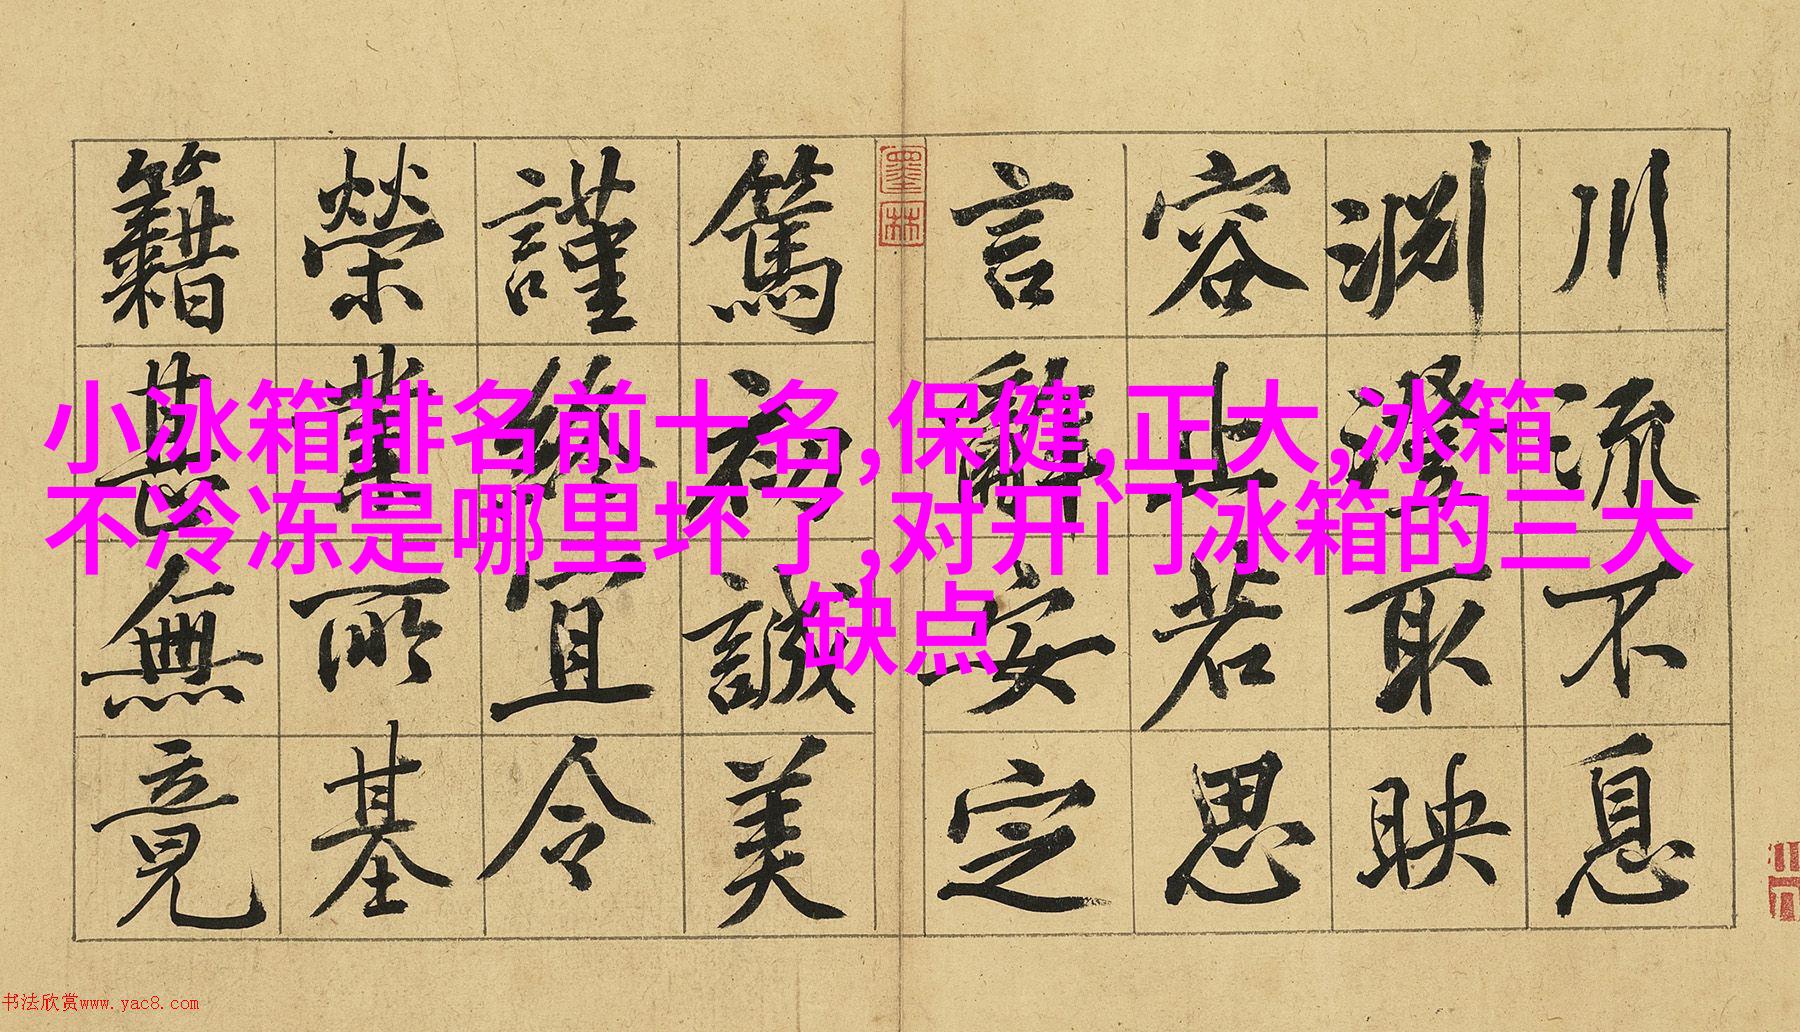 小冰箱排名前十名,保健,正大,冰箱
不冷冻是哪里坏了,对开门冰箱的三大
缺点
川流不息
淵澄取映
容止若思
言辭安定
墨林
篤初誠美
謹終宜令
榮業所基
籍甚無竟
书法欣赏www.yac8.com